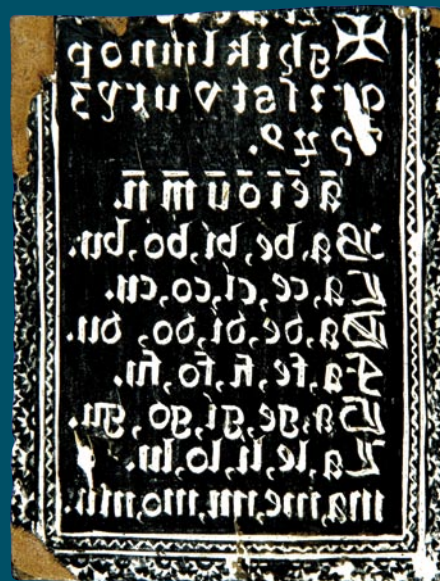 ✠ g h i k l m n o p
r ſ s t v u x y z
ā ē ī ō ū m̄ n̄.
Ba, be, bi, bo, bu.
Ca, ce, ci, co, cu.
Da, de, di, do, du.
Fa, fe, fi, fo, fu.
Ga, ge, gi, go, gu.
La, le, li, lo, lu.
ma, me, mi, mo, mu.